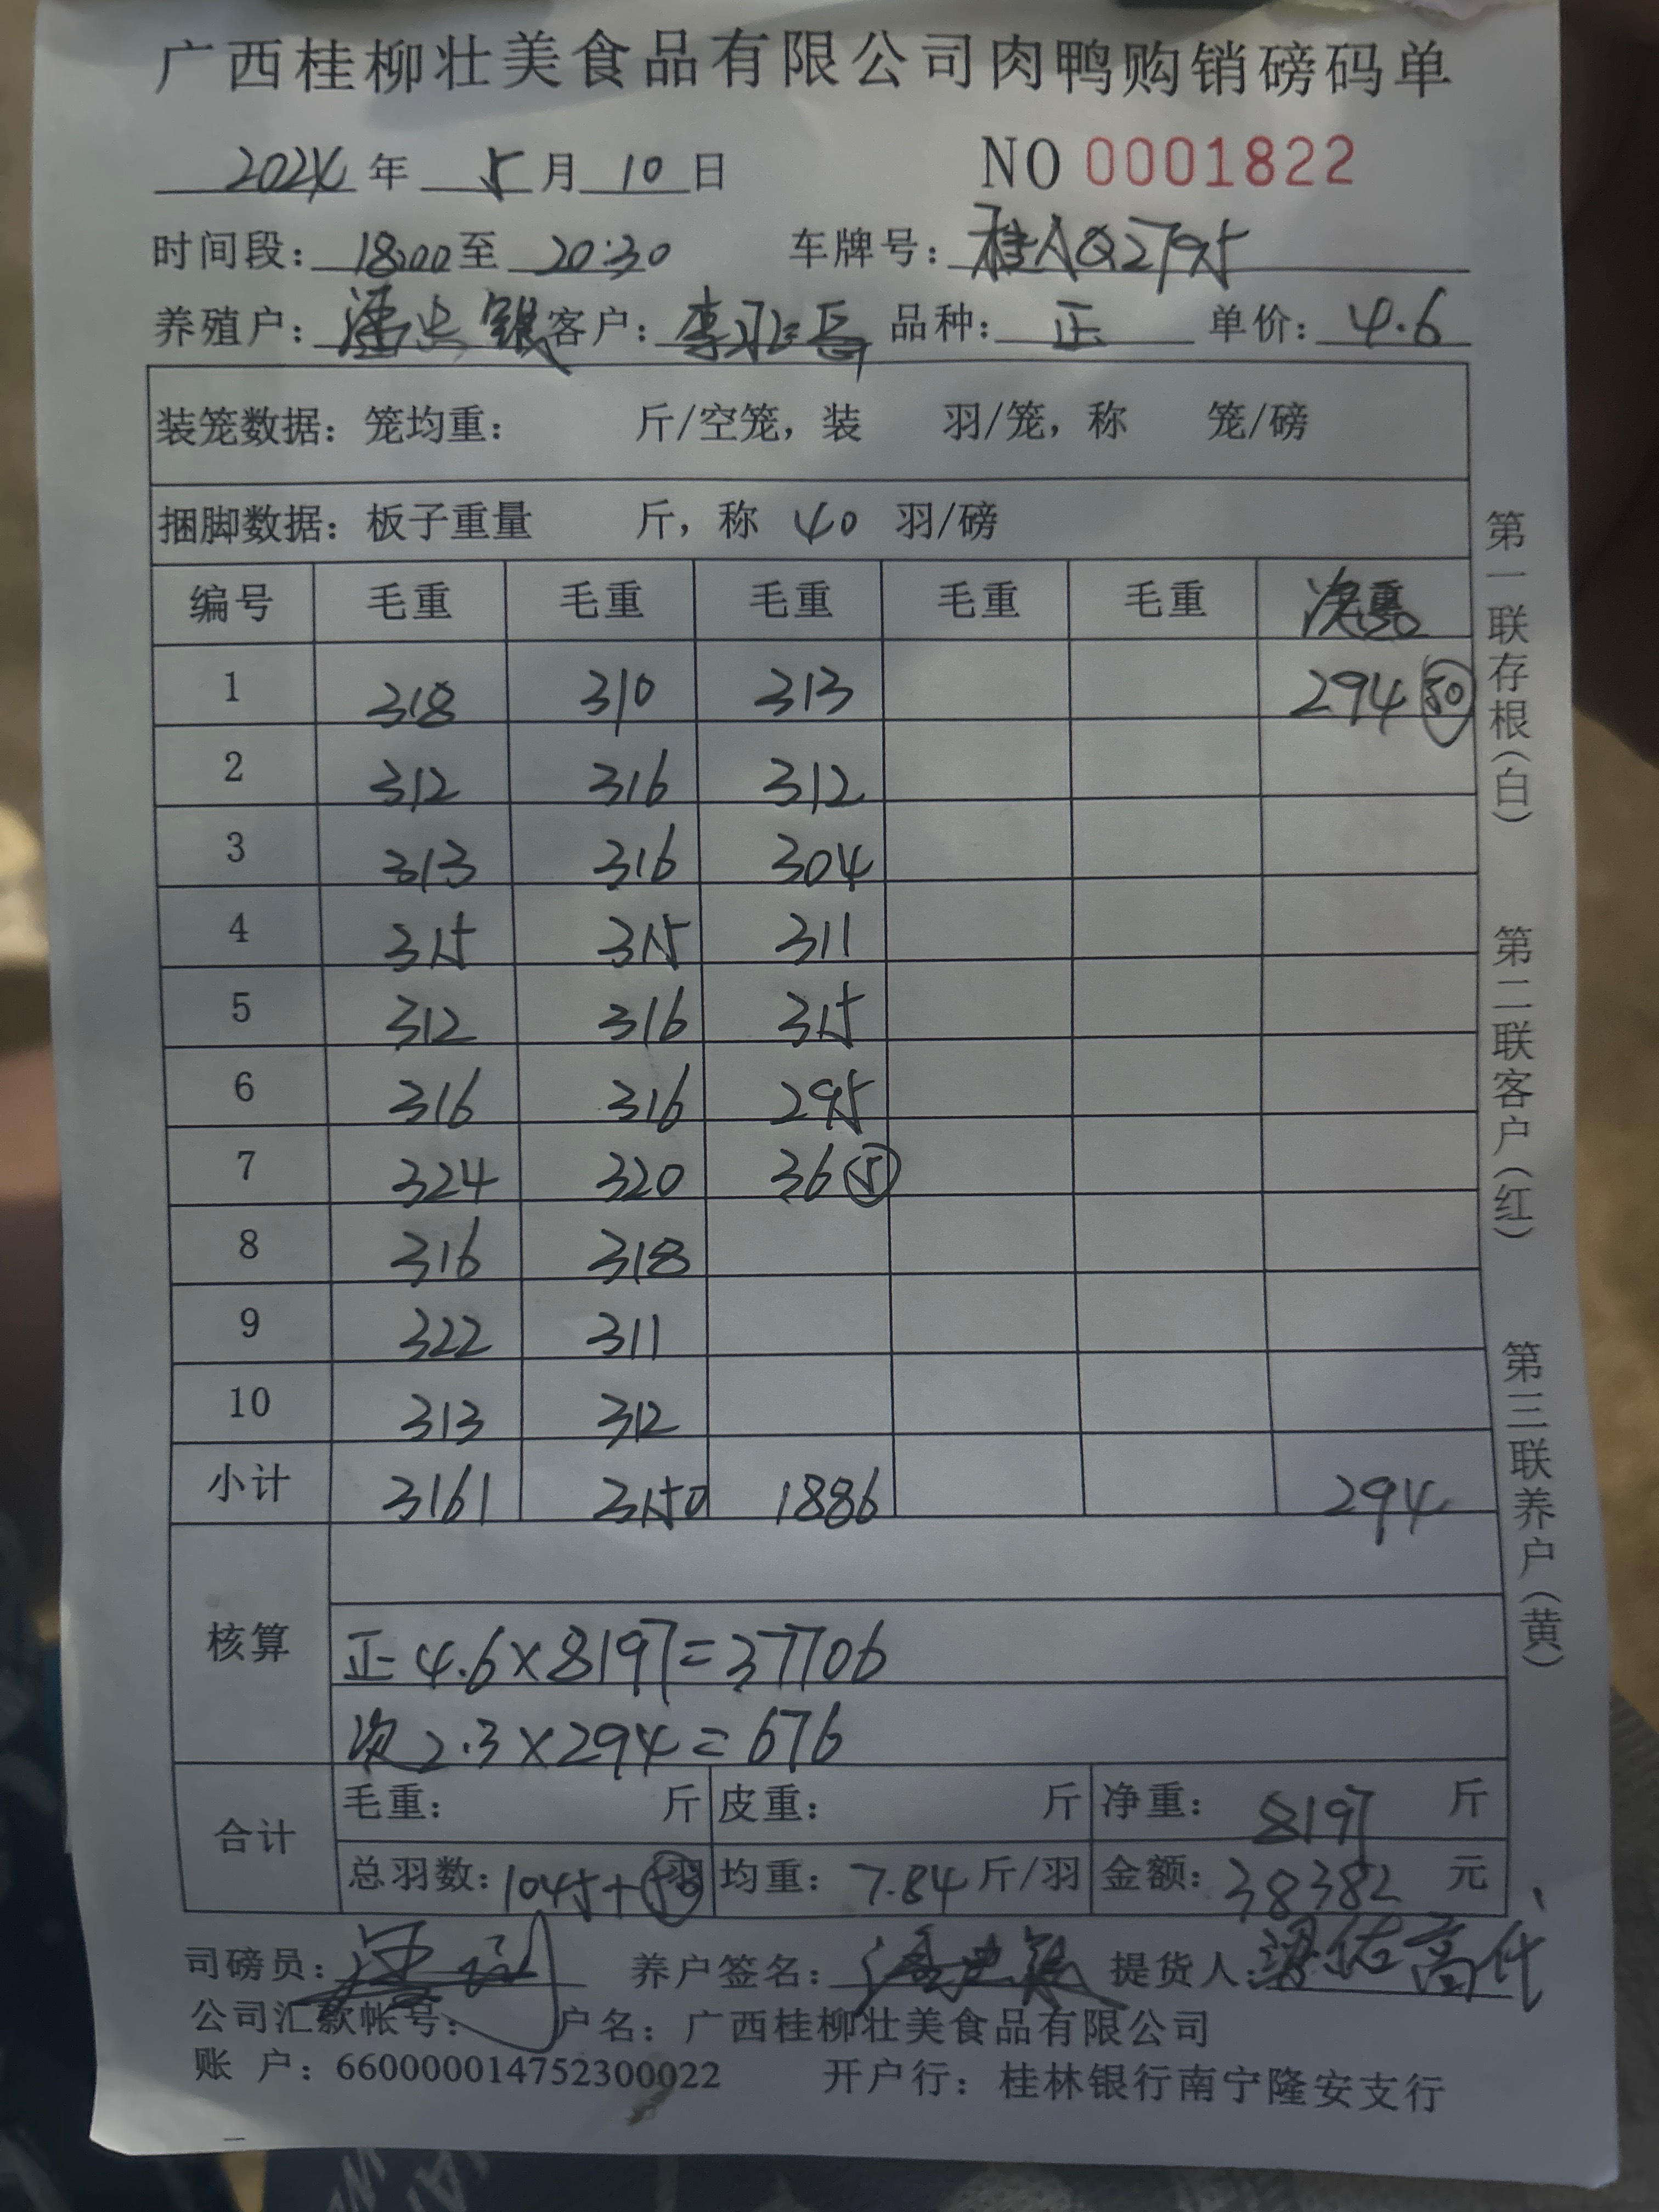 广西桂柳壮美食品有限公司肉鸭购销磅码单
2024年 5月10日 NO 0001822
时间段：18:00至 20:30 车牌号：桂AQ2795
养殖户： 客户： 品种：正 单价：4.6
装笼数据：笼均重： 斤/空笼，装 羽/笼，称 笼/磅
捆脚数据：板子重量 斤，称 40 羽/磅
编号 毛重 毛重 毛重 毛重 毛重 次重
1 318 310 313 294 50
2 312 316 312
3 313 316 304
4 315 315 311
5 312 316 315
6 316 316 295
7 324 320 36 5
8 316 318
9 322 311
10 313 312
小计 3161 3150 1886 294
核算
正 4.6×8197=37706
次 2.3×294=676
合计 毛重： 斤 皮重： 斤 净重：8197 斤
总羽数：1045+50羽 均重：7.84斤/羽 金额：38382 元
司磅员： 养户签名： 提货人：
公司汇款帐号： 户名：广西桂柳壮美食品有限公司
账 户：660000014752300022 开户行：桂林银行南宁隆安支行
第一联存根（白） 第二联客户（红） 第三联养户（黄）